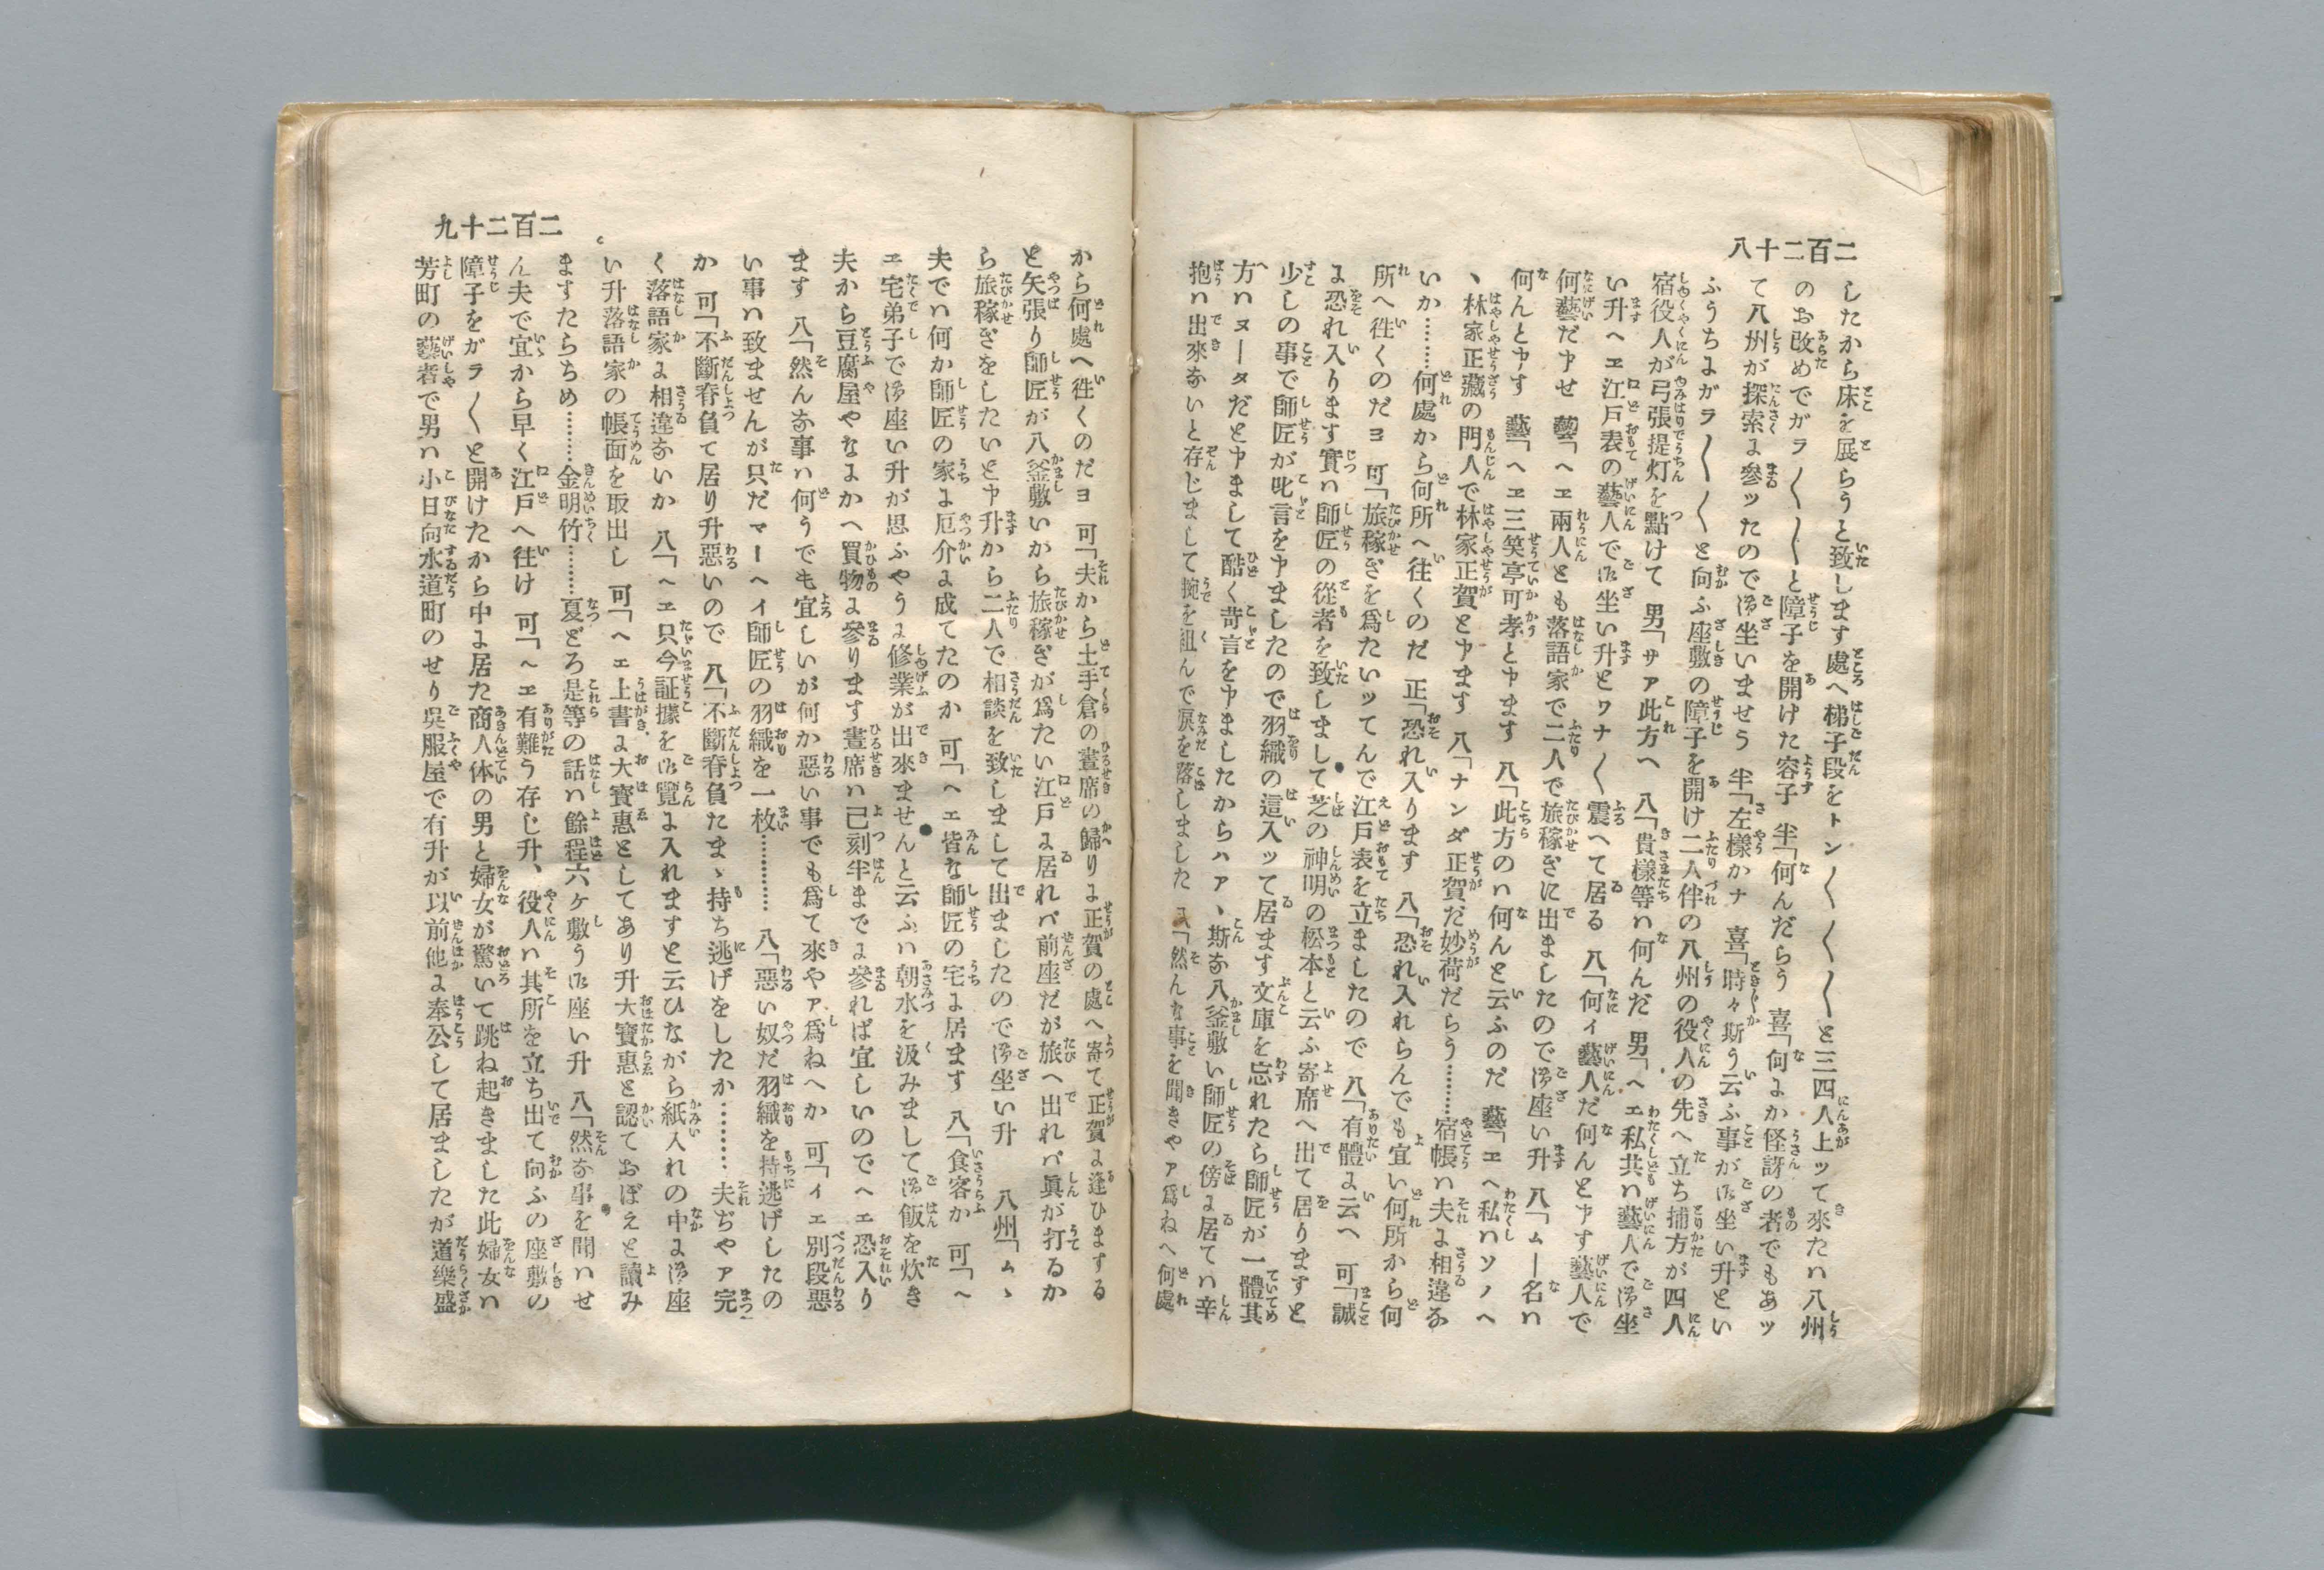 二百二十八
したから床を展らうと致します處へ梯子段をトン〳〵〳〵〳〵と三四人上ッて來たハ八州
のお改めでガラ〳〵〳〵と障子を開けた容子　半「何んだらう　喜「何よか怪訝の者でもあッ
て八州が探索よ參ッたので御坐いませう　半「左樣かナ　喜「時々斯う云ふ事が御坐い升とい
ふうちよガラ〳〵〳〵と向ふ座敷の障子を開け二人伴の八州の役人の先へ立ち捕方が四人
宿役人が弓張提灯を點けて　男「サア此方へ　八「貴樣等ハ何んだ　男「ヘエ私共ハ藝人で御坐
い升ヘエ江戸表の藝人で御坐い升とワナ〳〵震へて居る　八「何ィ藝人だ何んと申す藝人で
何藝だ申せ　藝「ヘエ兩人とも落語家で二人で旅稼ぎに出ましたので御座い升　八「ムー名ハ
何んと申す　藝「ヘエ三笑亭可孝と申ます　八「此方のハ何んと云ふのだ　藝「エヘ私ハソノヘ
ヽ林家正藏の門人で林家正賀と申ます　八「ナンダ正賀だ妙荷だらう………宿帳ハ夫よ相違な
いか………何處から何所へ徃くのだ　正「恐れ入ります　八「恐れ入れらんでも宜い何所から何
所へ徃くのだヨ　可「旅稼ぎを爲たいッてんで江戸表を立ましたので　八「有體よ云へ　可「誠
よ恐れ入ります實ハ師匠の從者を致しまして芝の神明の松本と云ふ寄席へ出て居りますと
少しの事で師匠が叱言を申ましたので羽織の這入ッて居ます文庫を忘れたら師匠が一體其
方ハヌータだと申まして酷く苛言を申ましたからハア、斯な八釜敷い師匠の傍よ居てハ辛
抱ハ出來ないと存じまして腕を組んで涙を落しました　八「然んな事を聞きやア爲ねへ何處
二百二十九
から何處へ徃くのだヨ　可「夫から土手倉の晝席の歸りよ正賀の處へ寄て正賀よ逢ひまする
と矢張り師匠が八釜敷いから旅稼ぎが爲たい江戸よ居れバ前座だが旅へ出れバ眞が打るか
ら旅稼ぎをしたいと申升から二人で相談を致しまして出ましたので御坐い升　八州「ムヽ
夫でハ何か師匠の家よ厄介よ成てたのか　可「ヘエ皆な師匠の宅よ居ます　八「食客か　可「ヘ
エ宅弟子で御座い升が思ふやうよ修業が出來ませんと云ふハ朝水を汲みまして御飯を炊き
夫から豆腐屋やなよかへ買物よ參ります晝席ハ己刻半までよ參れば宜しいのでヘエ恐入り
ます　八「然んな事ハ何うでも宜しいが何か惡い事でも爲て來やア爲ねへか　可「イエ別段惡
い事ハ致ませんが只だマーヘイ師匠の羽織を一枚…………　八「惡い奴だ羽織を持逃げしたの
か　可「不斷脊負て居り升惡いので　八「不斷脊負たまゝ持ち逃げをしたか………夫ぢやア完
く落語家よ相違ないか　八「ヘエ只今証據を御覽よ入れますと云ひながら紙入れの中よ御座
い升落語家の帳面を取出し　可「ヘエ上書よ大寳惠としてあり升大寳惠と認ておぼえと讀み
ますたらちめ………金明竹………夏どろ是等の話ハ餘程六ケ敷う御座い升　八「然な事を聞ハせ
ん夫で宜から早く江戸へ徃け　可「ヘエ有難う存じ升、役人ハ其所を立ち出て向ふの座敷の
障子をガラ〳〵と開けたから中よ居た商人体の男と婦女が驚いて跳ね起きました此婦女ハ
芳町の藝者で男ハ小日向水道町のせり呉服屋で有升が以前他よ奉公して居ましたが道樂盛